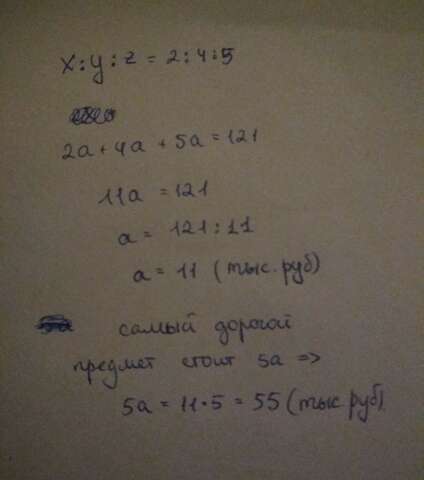 x:y:z = 2:4:5
2a+4a+5a=121
11a =121
a= 121:11
a= 11 (тыс.руб)
самый дорогой
предмет стоит 5a =>
5a = 11·5 = 55 (тыс.руб)